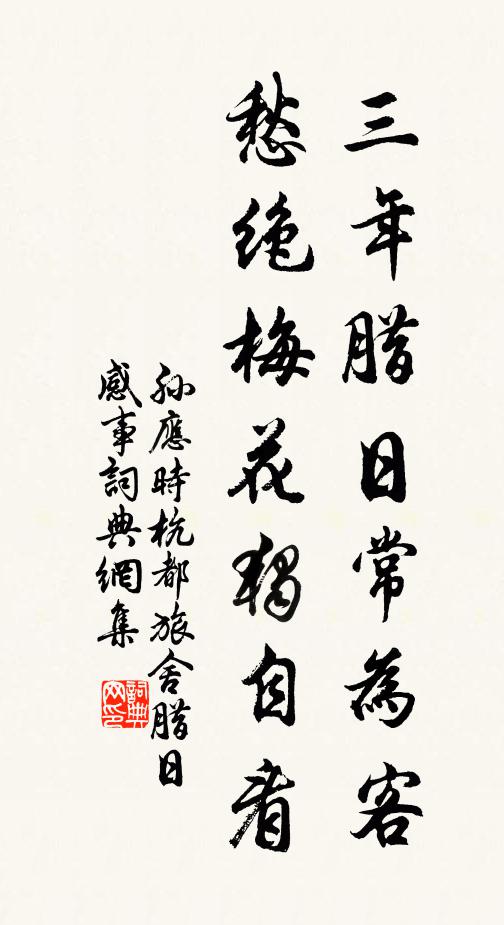 三年腊日常為客
愁绝梅花独自看
孙應時杭都旅舍腊日
感事詞典網集
詞典
网印